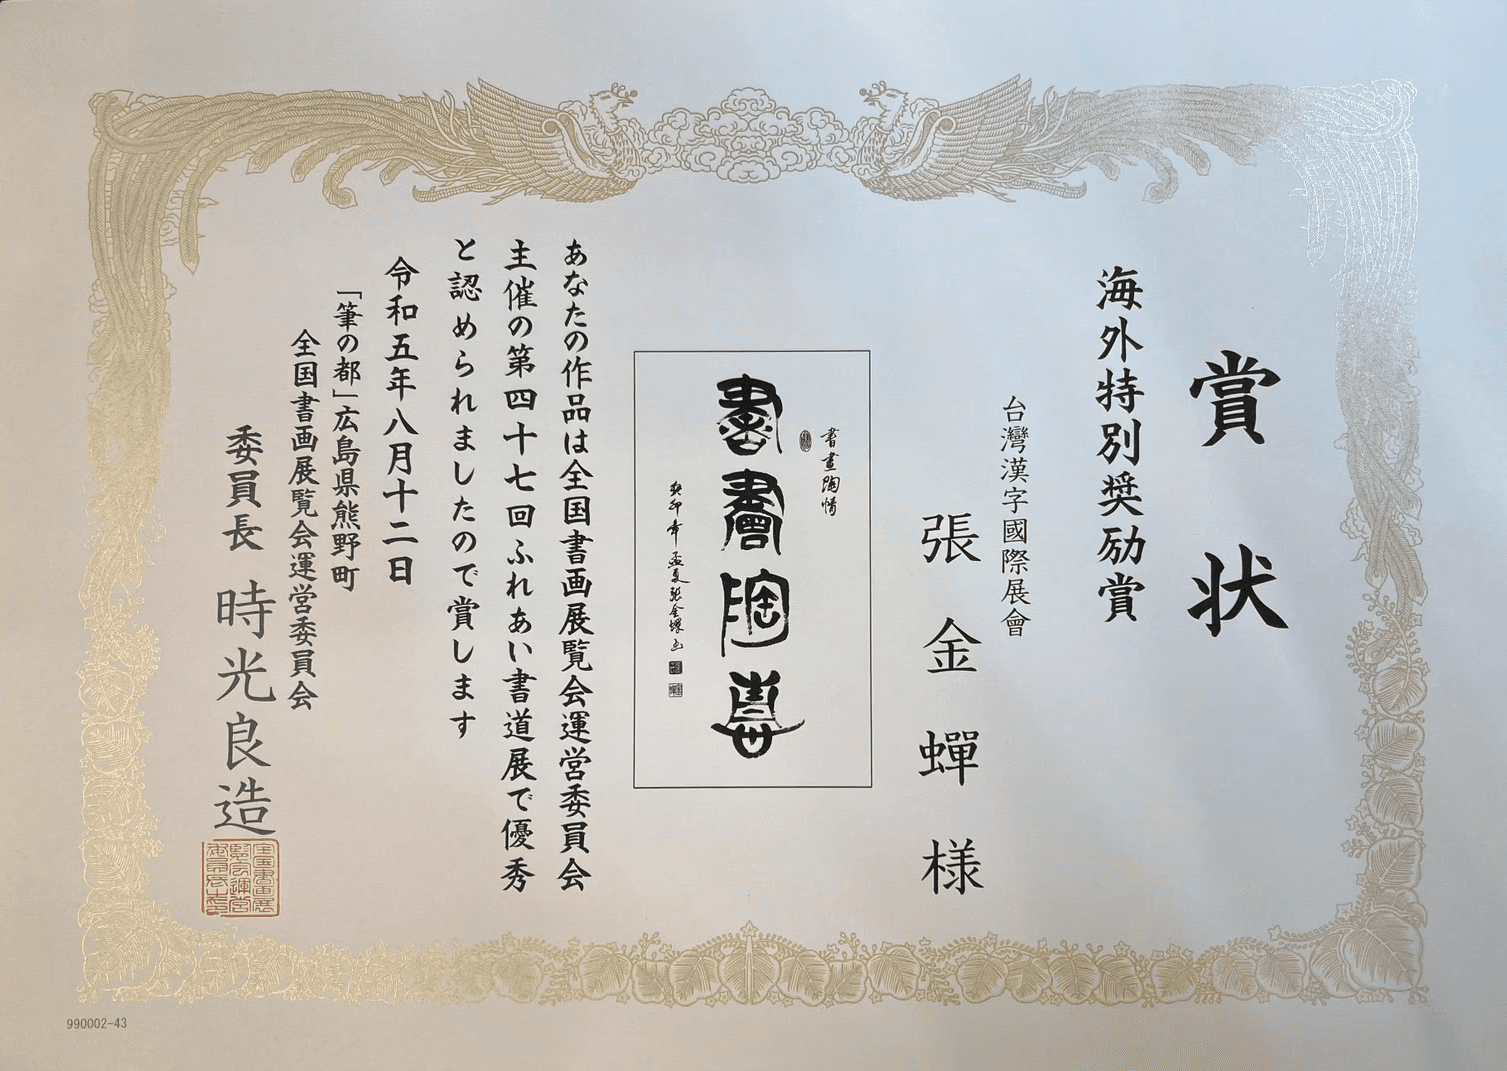 賞状
海外特別奨励賞
台灣漢字國際展會
張金蟬様
書畫陶情
書畫陶情
癸卯年孟夏張金蟬
あなたの作品は全国書画展覧会運営委員会
主催の第四十七回ふれあい書道展で優秀
と認められましたので賞します
令和五年八月十二日
「筆の都」広島県熊野町
全国書画展覧会運営委員会
委員長 時光良造
990002-43